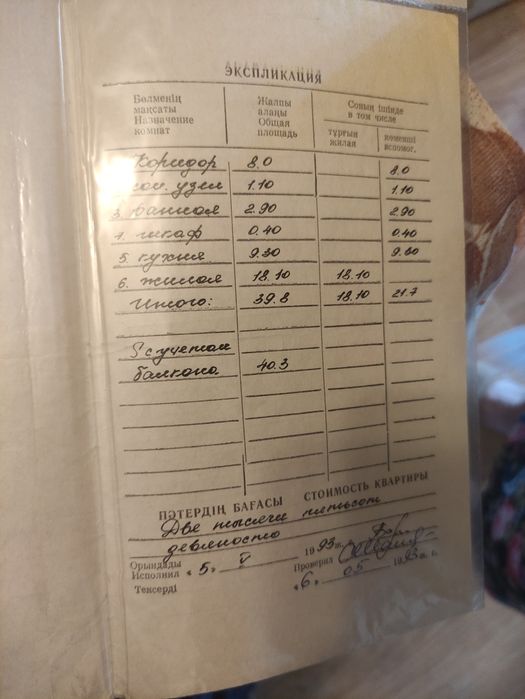 ЭКСПЛИКАЦИЯ
Бөлменің мақсаты Назначение комнат
Жалпы алаңы Общая площадь
Соның ішінде в том числе
тұрғын жилая
көмекші вспомог.
Коридор 8.0 8.0
сан. узел 1.10 1.10
3. ванная 2.90 2.90
4. шкаф 0.40 0.40
5. кухня 9.30 9.30
6. жилая 18.10 18.10
Итого: 39.8 18.10 21.7
S с учетом
балкона 40.3
ПӘТЕРДІҢ БАҒАСЫ СТОИМОСТЬ КВАРТИРЫ
Две тысячи пятьсот
девяносто
Орындады
Исполнил « 5 » V 1993 ж. Проверил
Тексерді « 6 » 05 1993 г.